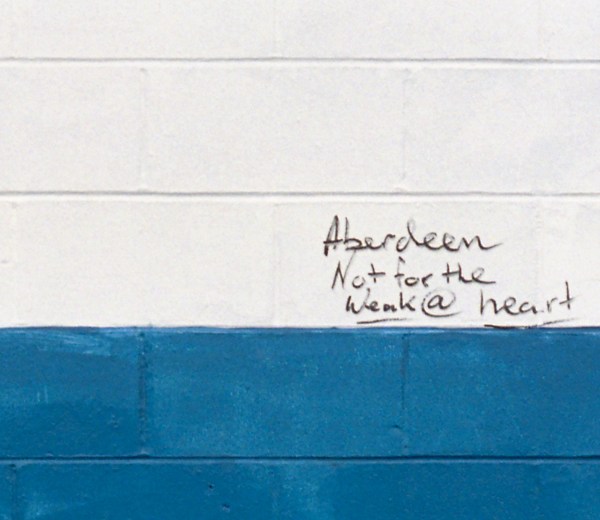 Aberdeen
Not for the
weak @ heart